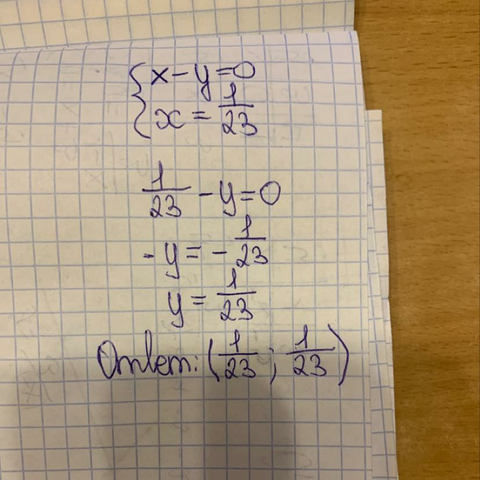 {x - y = 0
{x = 1/23
1/23 - y = 0
- y = - 1/23
y = 1/23
Ответ: (1/23; 1/23)